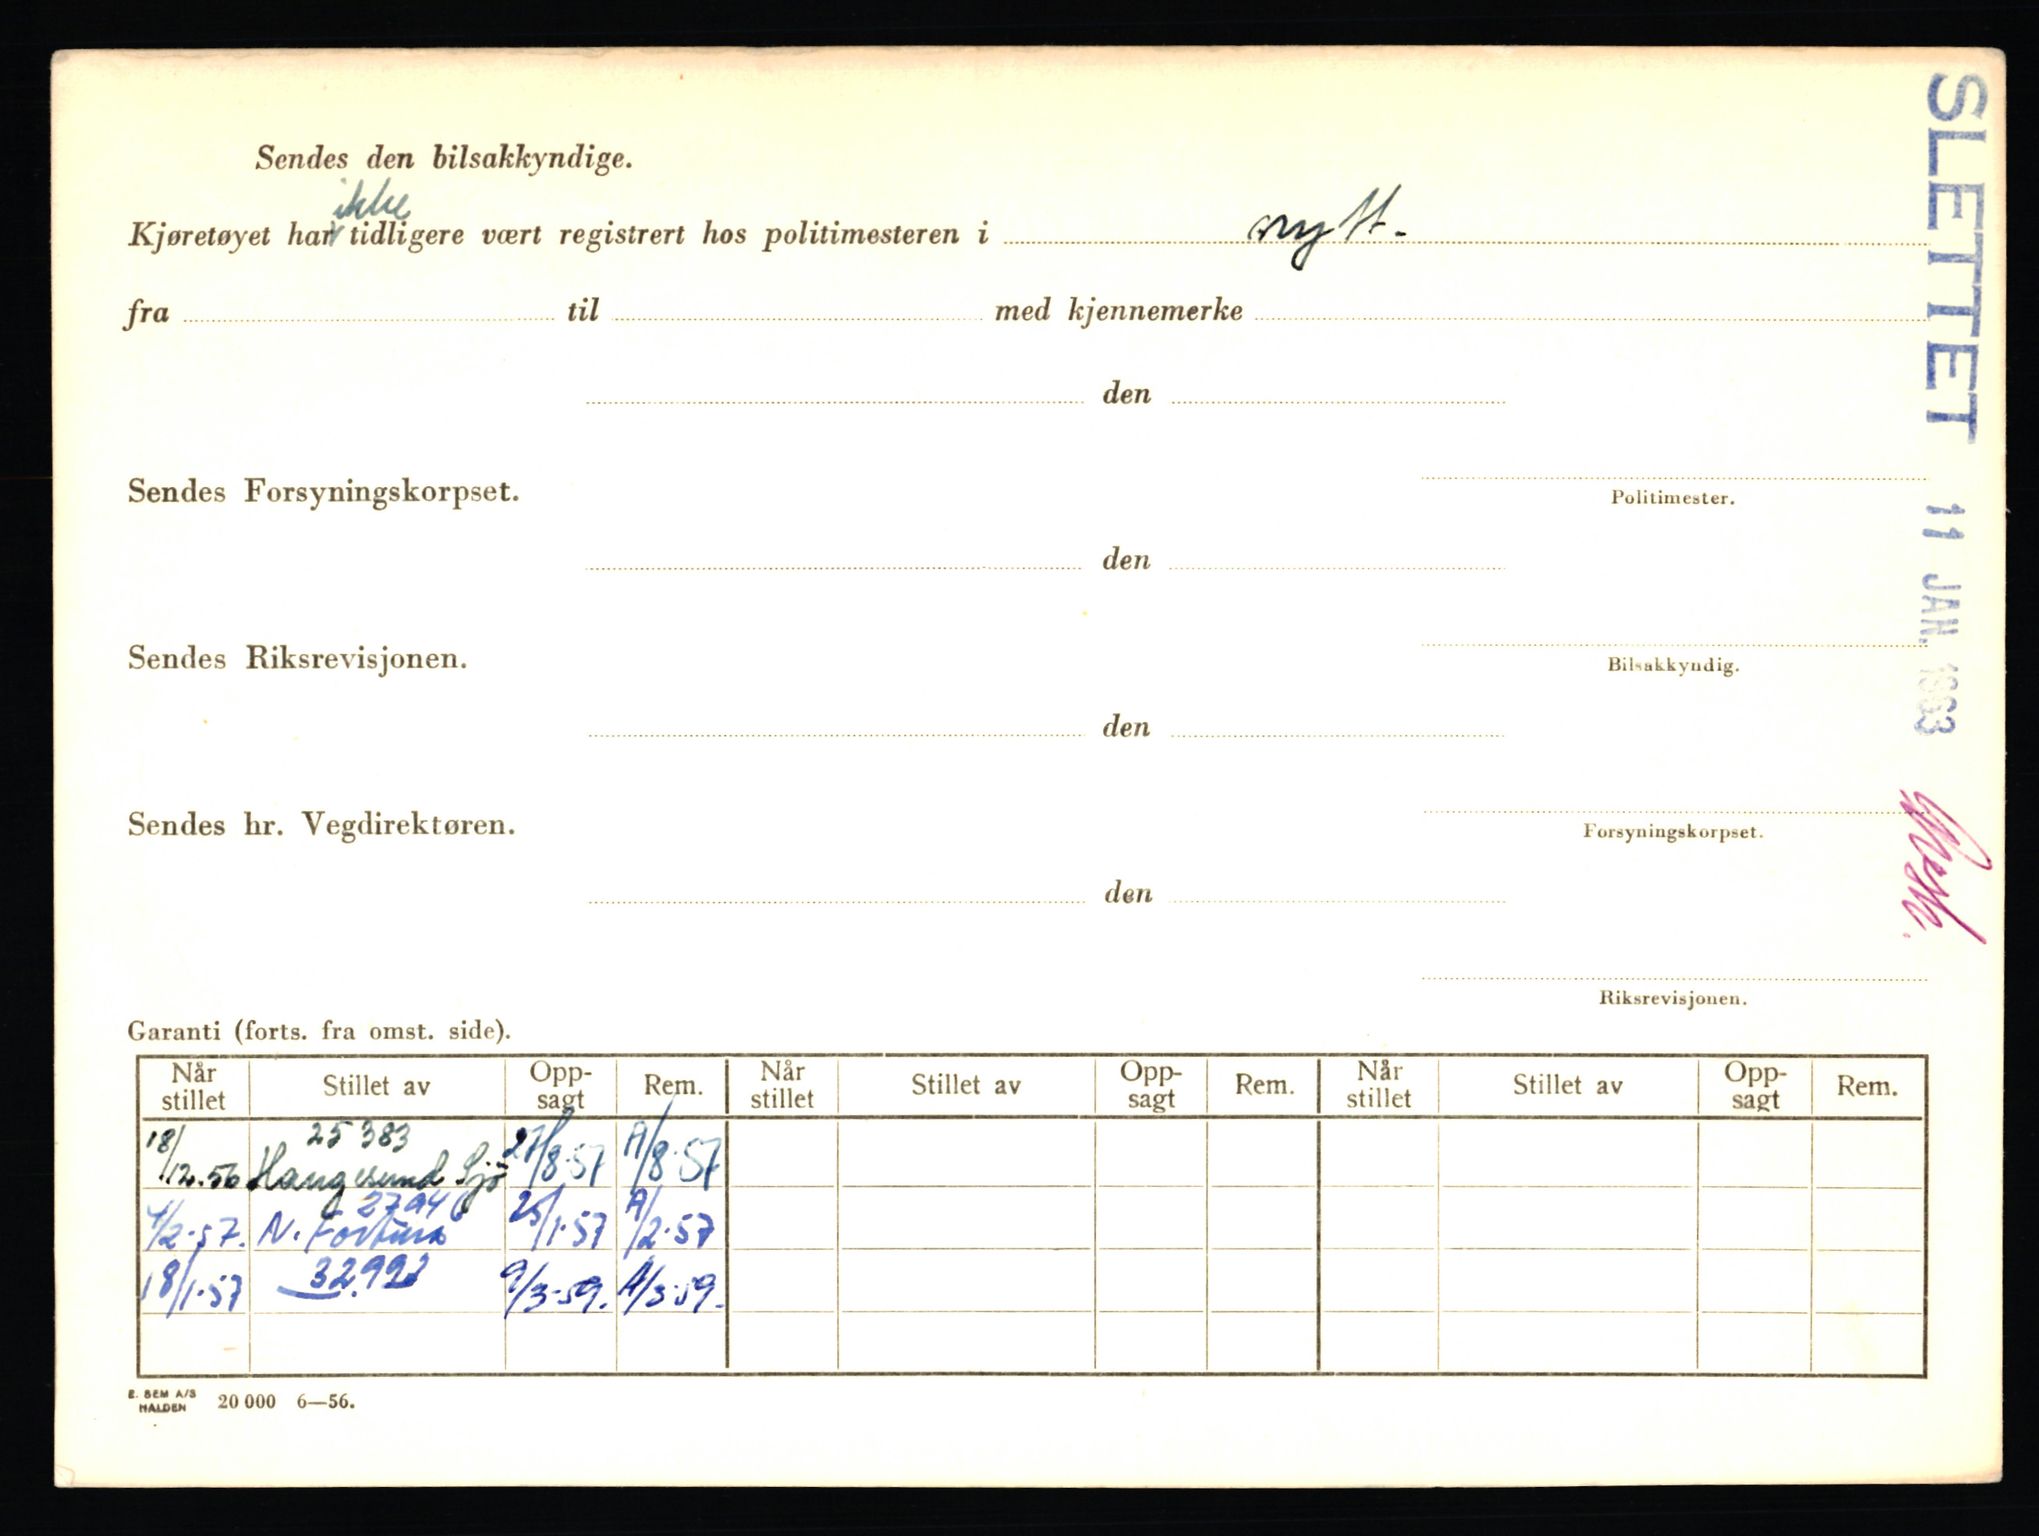 Sendes den bilsakkyndige.
ikke
Kjøretøyet har tidligere vært registrert hos politimesteren i nytt.
fra til med kjennemerke
den
Sendes Forsyningskorpset.
Politimester.
den
Sendes Riksrevisjonen.
Bilsakkyndig.
den
Sendes hr. Vegdirektøren.
Forsyningskorpset.
den
Riksrevisjonen.
SLETTET 11 JAN. 1963
Garanti (forts. fra omst. side).
Når stillet Stillet av Opp-sagt Rem. Når stillet Stillet av Opp-sagt Rem. Når stillet Stillet av Opp-sagt Rem.
25383
18/12.56 Haugesund Sjø 27/8.57 A/8.57
27940
4/2.57. N. Fortuna 25/1.57 A/2.57
18/1.57 32.992 9/3-59. A/3.59.
E. SEM A/S
HALDEN 20 000 6—56.